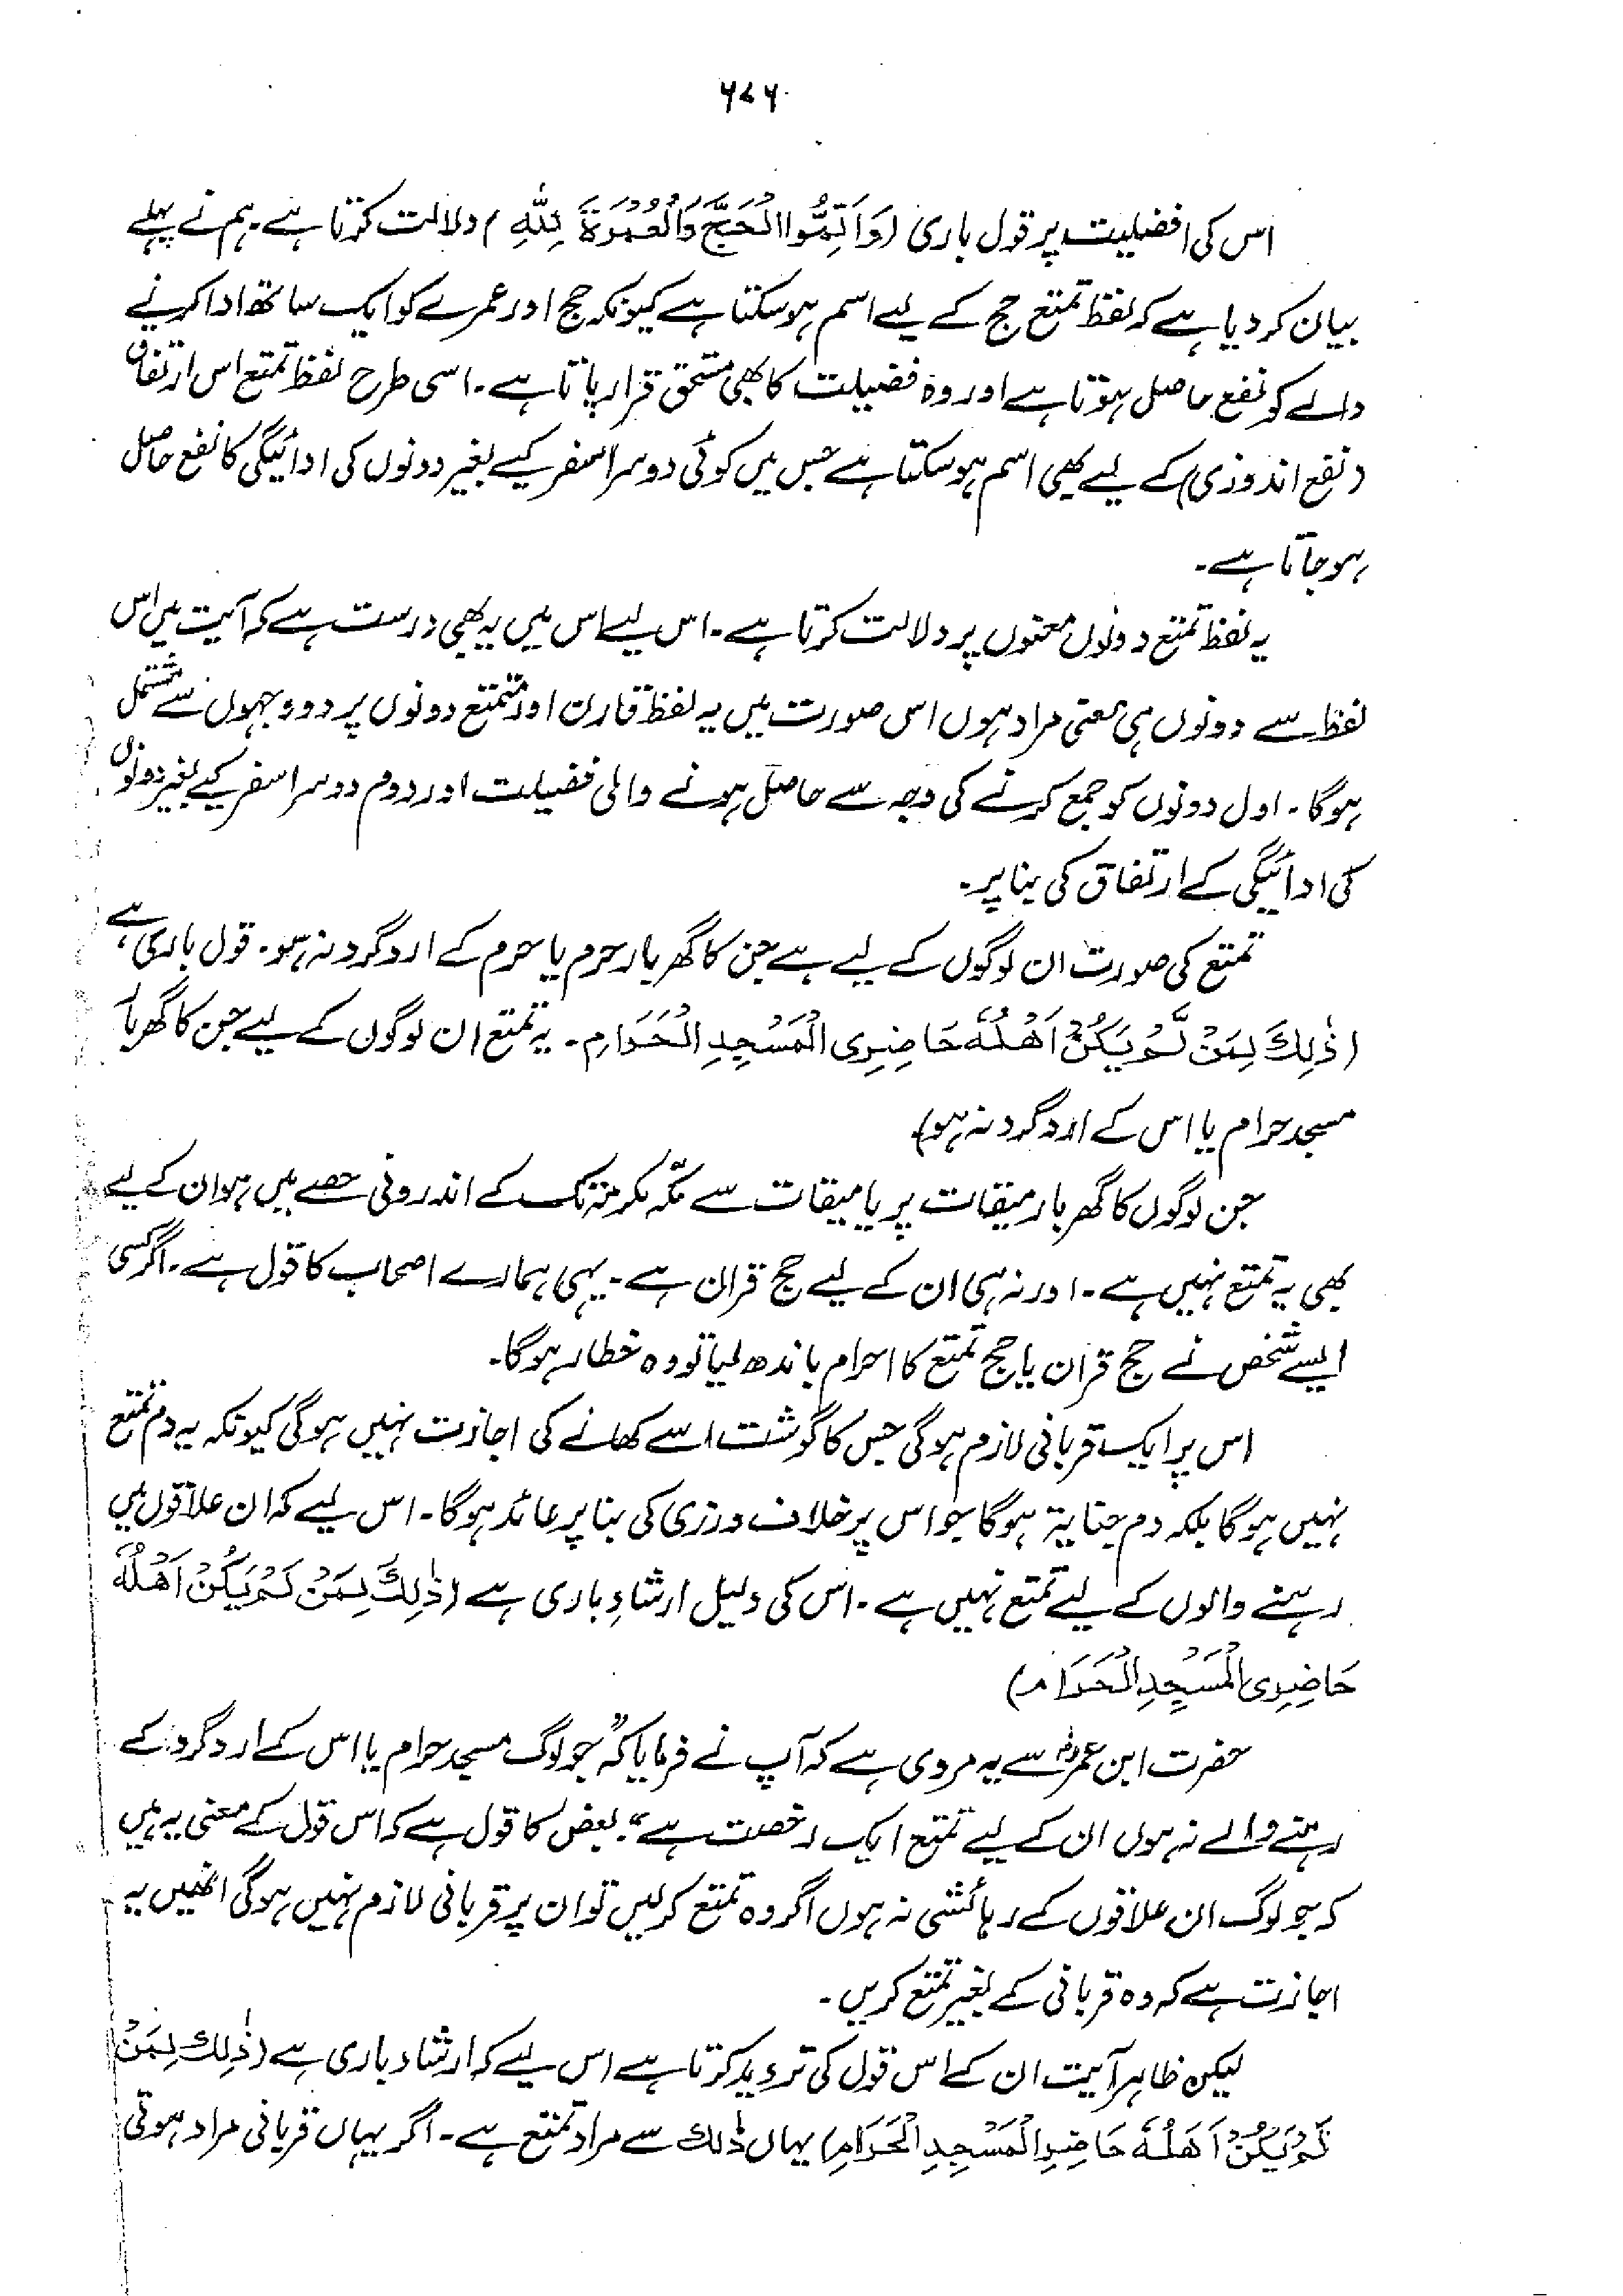 ۶۷۶
اس کی افضلیت پر قول باری (وَاَتِمُّوا الْحَجَّ وَالْعُمْرَةَ لِلّٰهِ) دلالت کرتا ہے۔ ہم نے پہلے
بیان کر دیا ہے کہ لفظ تمتع حج کے لیے اسم ہو سکتا ہے کیونکہ حج اور عمرے کو ایک ساتھ ادا کرنے
والے کو نفع حاصل ہوتا ہے اور وہ فضیلت کا بھی مستحق قرار پاتا ہے۔ اسی طرح لفظ تمتع اس ارتفاق
(نفع اندوزی) کے لیے بھی اسم ہو سکتا ہے جس میں کوئی دوسرا سفر کیے بغیر دونوں کی ادائیگی کا نفع حاصل
ہو جاتا ہے۔
یہ لفظ تمتع دونوں معنوں پر دلالت کرتا ہے۔ اس لیے اس میں یہ بھی درست ہے کہ آیت میں اس
لفظ سے دونوں ہی معنی مراد ہوں اس صورت میں یہ لفظ قارن اور متمتع دونوں پر دو وجہوں سے مشتمل
ہوگا۔ اول دونوں کو جمع کرنے کی وجہ سے حاصل ہونے والی فضیلت اور دوم دوسرا سفر کیے بغیر دونوں
کی ادائیگی کے ارتفاق کی بنا پر۔
تمتع کی صورت ان لوگوں کے لیے ہے جن کا گھر بار حرم یا حرم کے ارد گرد نہ ہو۔ قول باری ہے،
(ذٰلِكَ لِمَنْ لَّمْ يَكُنْ اَهْلُهٗ حَاضِرِى الْمَسْجِدِ الْحَرَامِ۔ یہ تمتع ان لوگوں کے لیے جن کا گھر بار
مسجد حرام یا اس کے ارد گرد نہ ہو)
جن لوگوں کا گھر بار میقات پر یا میقات سے مکّہ مکرمہ تک کے اندرونی حصے میں ہو ان کے لیے
بھی یہ تمتع نہیں ہے۔ اور نہ ہی ان کے لیے حج قران ہے۔ یہی ہمارے اصحاب کا قول ہے۔ اگر کسی
ایسے شخص نے حج قران یا حج تمتع کا احرام باندھ لیا تو وہ خطا کار ہوگا۔
اس پر ایک قربانی لازم ہوگی جس کا گوشت اسے کھانے کی اجازت نہیں ہوگی کیونکہ یہ دم تمتع
نہیں ہوگا بلکہ دم جنایۃ ہوگا جو اس پر خلاف ورزی کی بنا پر عائد ہوگا۔ اس لیے کہ ان علاقوں میں
رہنے والوں کے لیے تمتع نہیں ہے۔ اس کی دلیل ارشادِ باری ہے (ذٰلِكَ لِمَنْ لَمْ يَكُنْ اَهْلُهٗ
حَاضِرِى الْمَسْجِدِ الْحَرَامِ)
حضرت ابن عمرؓ سے یہ مروی ہے کہ آپ نے فرمایا کہ "جو لوگ مسجد حرام یا اس کے ارد گرد کے
رہنے والے نہ ہوں ان کے لیے تمتع ایک رخصت ہے"۔ بعض کا قول ہے کہ اس قول کے معنی یہ ہیں
کہ جو لوگ ان علاقوں کے رہائشی نہ ہوں اگر وہ تمتع کر لیں تو ان پر قربانی لازم نہیں ہوگی انھیں یہ
اجازت ہے کہ وہ قربانی کے بغیر تمتع کریں۔
لیکن ظاہر آیت ان کے اس قول کی تردید کرتا ہے اس لیے کہ ارشاد باری ہے (ذٰلِكَ لِمَنْ
لَمْ يَكُنْ اَهْلُهٗ حَاضِرِ الْمَسْجِدِ الْحَرَامِ) یہاں ذٰلِكَ سے مراد تمتع ہے۔ اگر یہاں قربانی مراد ہوتی